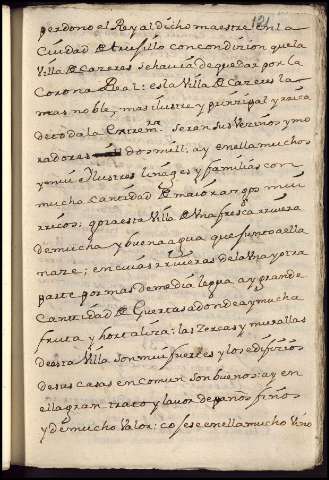 121
perdono el Rey al dicho maestre en la
Ciudad de trusillo con condizion que la
Villa de Cazeres se havia de quedar por la
Corona Real: es la Villa de Cazeres la
mas noble, mas ilustre y prinzipal y rica
de toda la Extremra. seran sus Vezinos y mo
radores dos mill: ay en ella muchos
y mui Illustres linages y familias con
mucha Cantidad de maiorazgos mui
rricos: goza esta Villa de Una fresca rrivera
de mucha y buena agua que junto a ella
naze; en cuias rriveras de la Una y otra
parte por mas de media legua ay grande
Cantidad de Guertas adonde ay mucha
fruta y hortaliza: las Zercas y murallas
de esta Villa son mui fuertes y los edifizios
de sus casas en comun son buenos: ay en
ella gran trato y lavor de paños finos
y de mucho Valor: cojese en ella mucho Vino